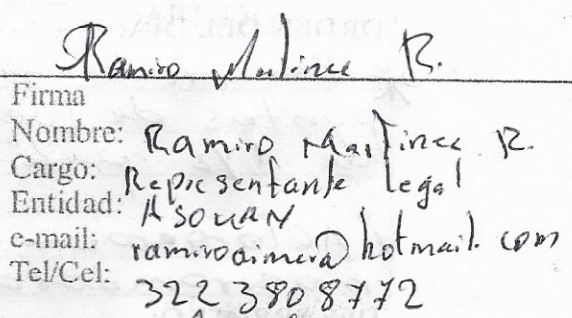 Ramiro Martinez R.
Firma
Nombre: Ramiro Martinez R.
Cargo: Representante legal
Entidad: ASOURN
e-mail: ramirodimera@hotmail.com
Tel/Cel: 3223808772